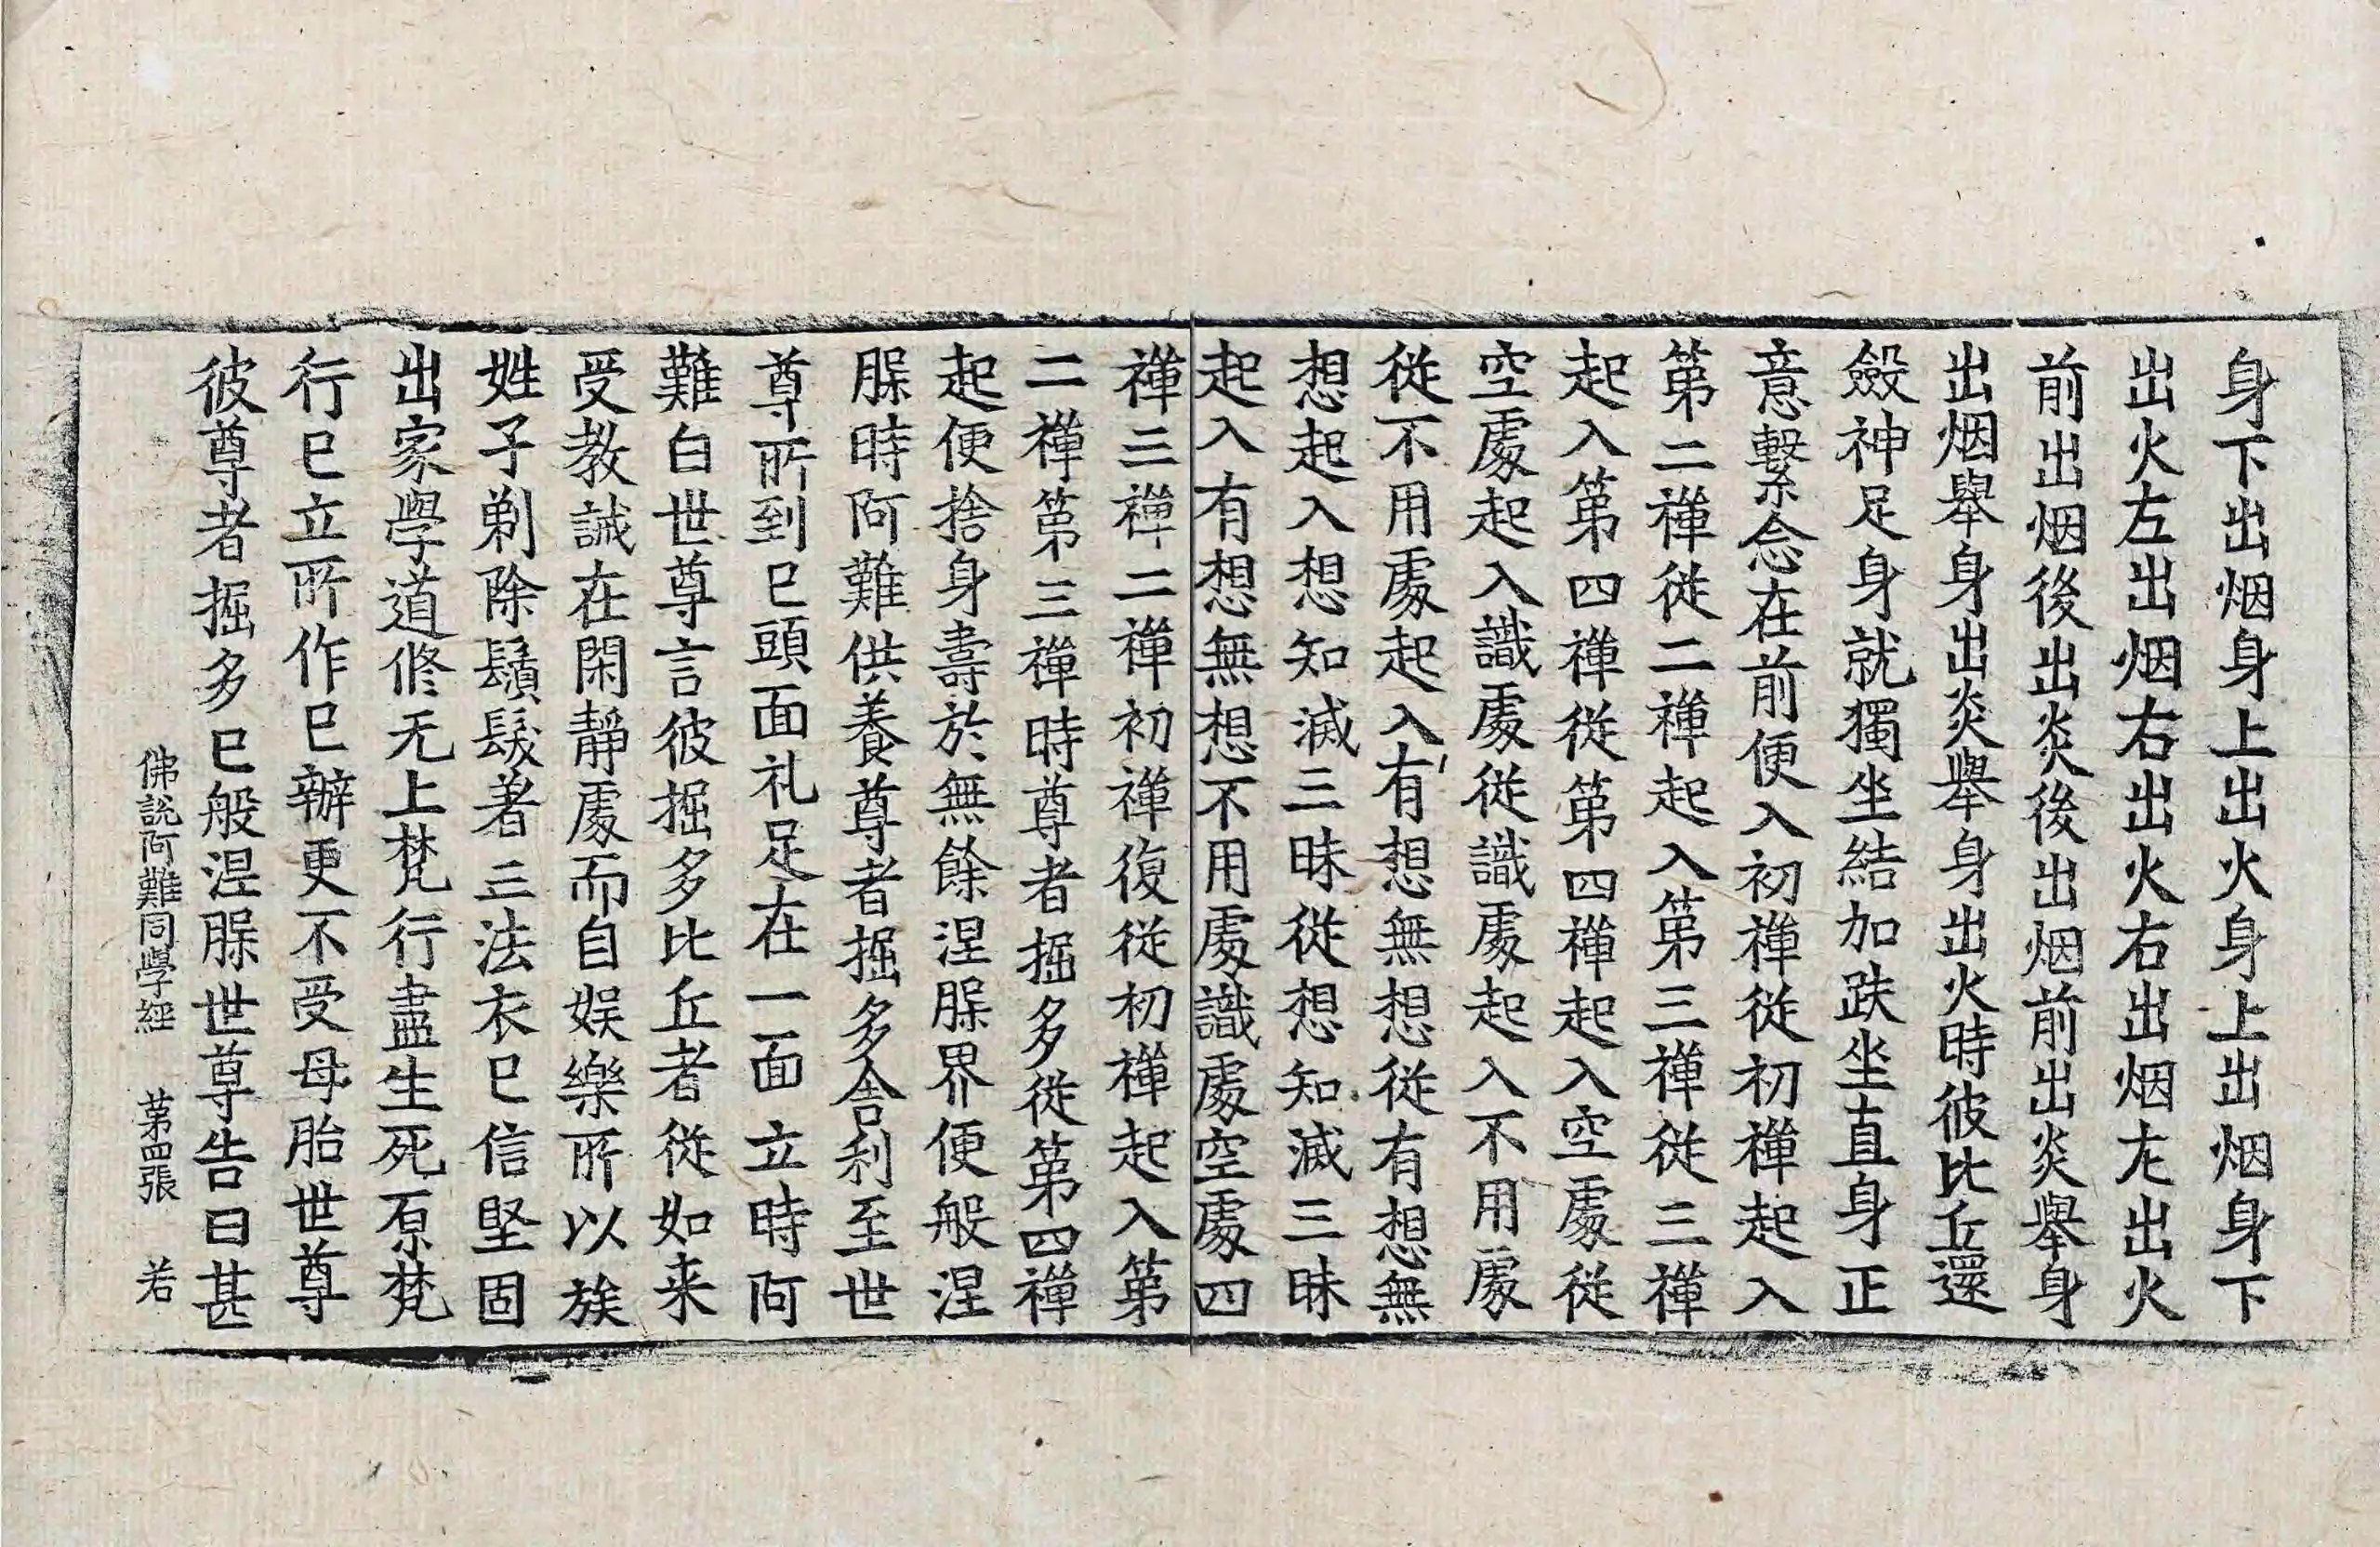 身下出烟身上出火身上出烟身下
出火左出烟右出火右出烟左出火
前出烟後出炎後出烟前出炎舉身
出烟舉身出炎舉身出火時彼比丘還
斂神足身就獨坐結加趺坐直身正
意繫念在前便入初禪從初禪起入
第二禪從二禪起入第三禪從三禪
起入第四禪從第四禪起入空處從
空處起入識處從識處起入不用處
從不用處起入有想無想從有想無
想起入想知滅三昧從想知滅三昧
起入有想無想不用處識處空處四
禪三禪二禪初禪復從初禪起入第
二禪第三禪時尊者掘多從第四禪
起便捨身壽於無餘涅槃界便般涅
槃時阿難供養尊者掘多舍利至世
尊所到已頭面礼足在一面立時阿
難白世尊言彼掘多比丘者從如来
受教誡在閑靜處而自娛樂所以族
姓子剃除鬚髮著三法衣已信堅固
出家學道修无上梵行盡生死原梵
行已立所作已辦更不受母胎世尊
彼尊者掘多已般涅槃世尊告曰甚
佛說阿難同學經 第四張 若